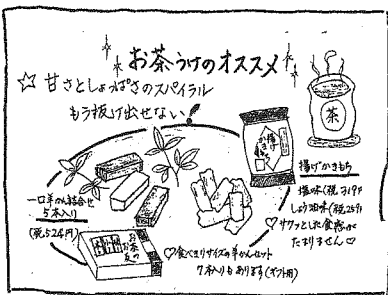 お茶うけのオススメ
☆ 甘さとしょっぱさのスパイラル
もう抜け出せない!
茶
揚げかきもち
塩味(税319円
しょうゆ味(税259
♡サクッとした食感が
たまりません♡
一口羊かん詰合せ
5本入り
(税524円)
♡食べきりサイズの羊かんセット
7本入りもあります(ギフト用)
お茶の友